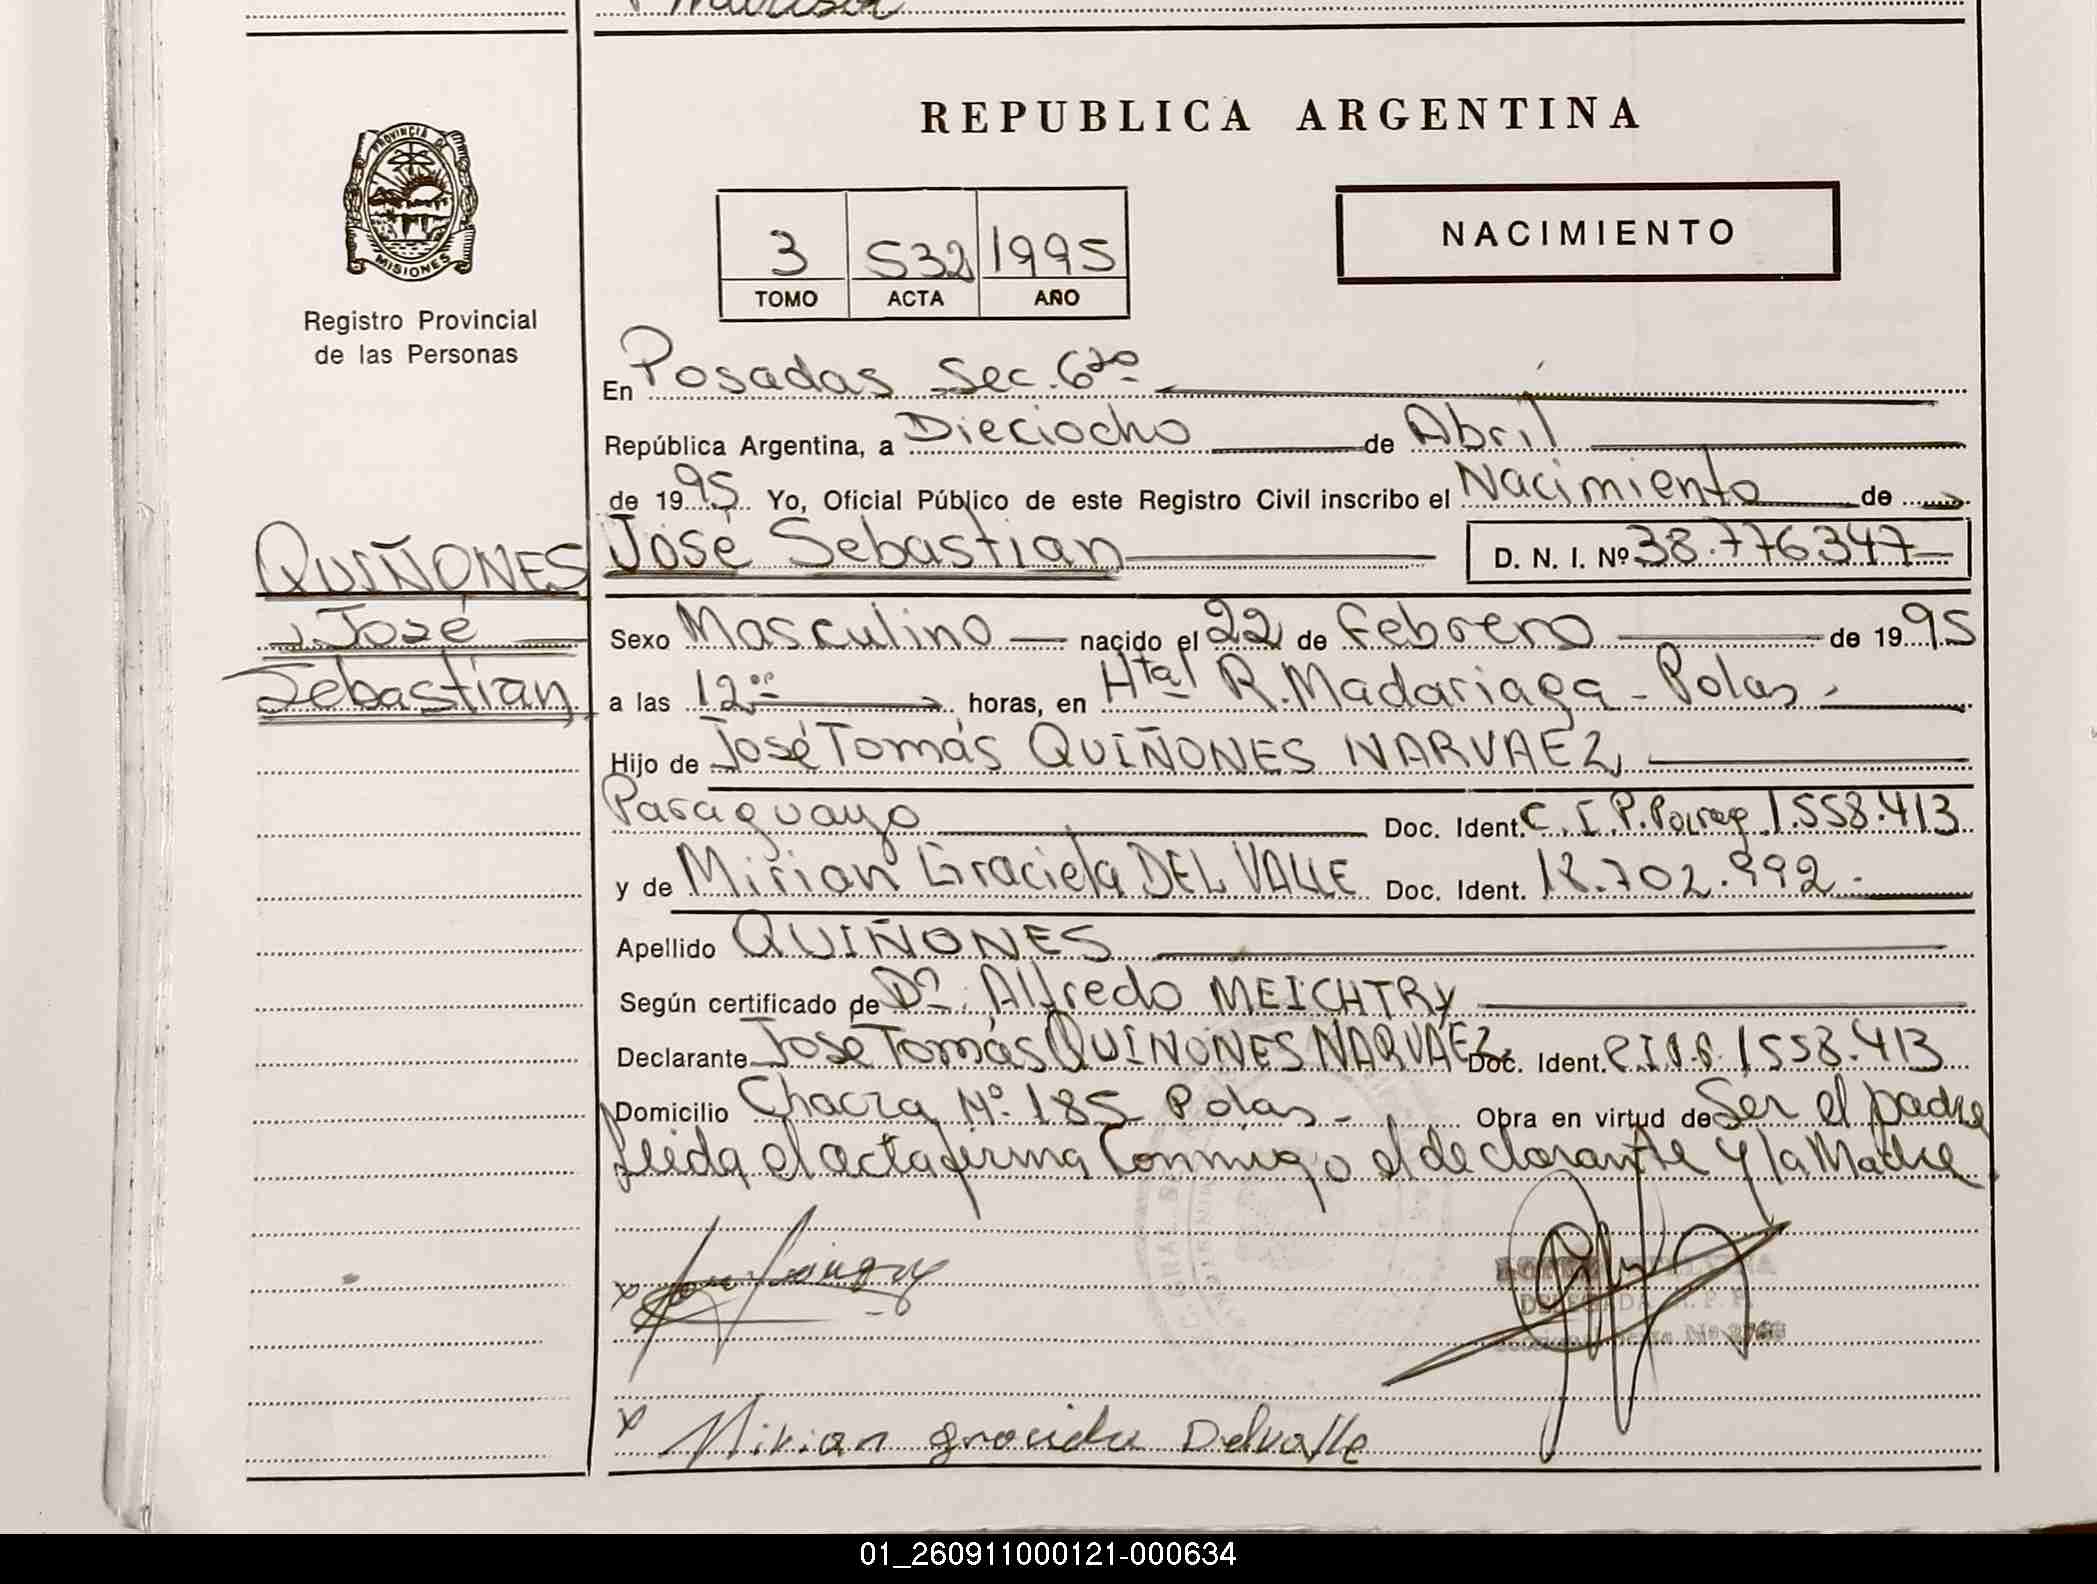 Marisol
PROVINCIA DE
MISIONES
Registro Provincial
de las Personas
REPUBLICA ARGENTINA
3 532 1995
TOMO ACTA AÑO
NACIMIENTO
En Posadas Sec. 6ta
República Argentina, a Dieciocho de Abril
de 1995 Yo, Oficial Público de este Registro Civil inscribo el Nacimiento de
QUIÑONES José Sebastian D. N. I. Nº 38.776347
José
Sebastian
Sexo Masculino nacido el 22 de Febrero de 1995
a las 12 horas, en Htal R. Madariaga - Pdas -
Hijo de José Tomás QUIÑONES NARVAEZ
Paraguayo Doc. Ident. C.I.P. Parag. 1.558.413
y de Mirian Graciela DEL VALLE Doc. Ident. 18.702.992.-
Apellido QUIÑONES
Según certificado de Dr. Alfredo MEICHTRY
Declarante José Tomás QUIÑONES NARVAEZ Doc. Ident. 1558.413
Domicilio Chacra Nº 185 Pdas - Obra en virtud de Ser el padre
Leida el acta firma Conmigo el declarante y la Madre
DELEGADA R. P. P.
x
x Mirian graciela Delvalle
01_260911000121-000634